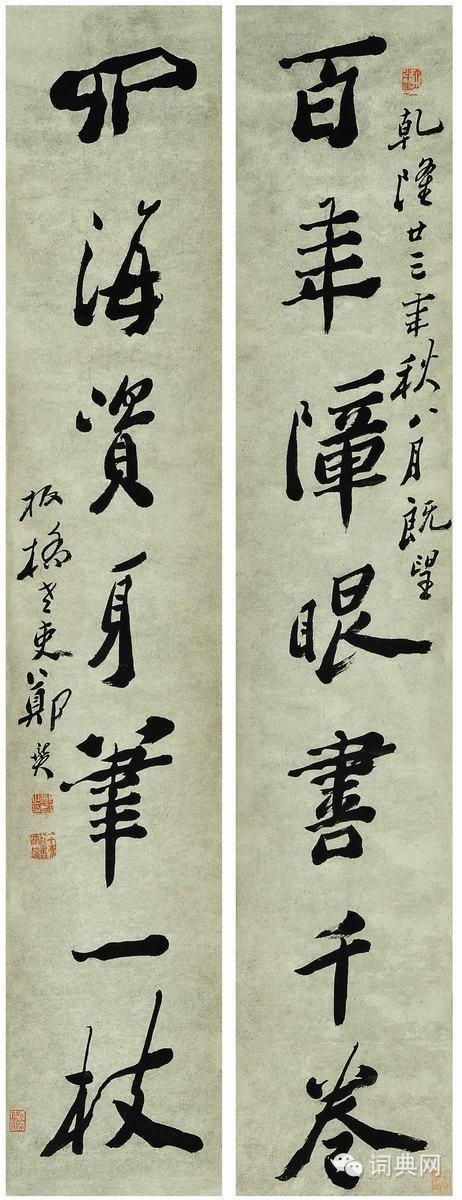 百年障眼書千卷
乾隆廿三年秋八月既望
四海資身筆一枝
板橋老吏鄭燮
词典网